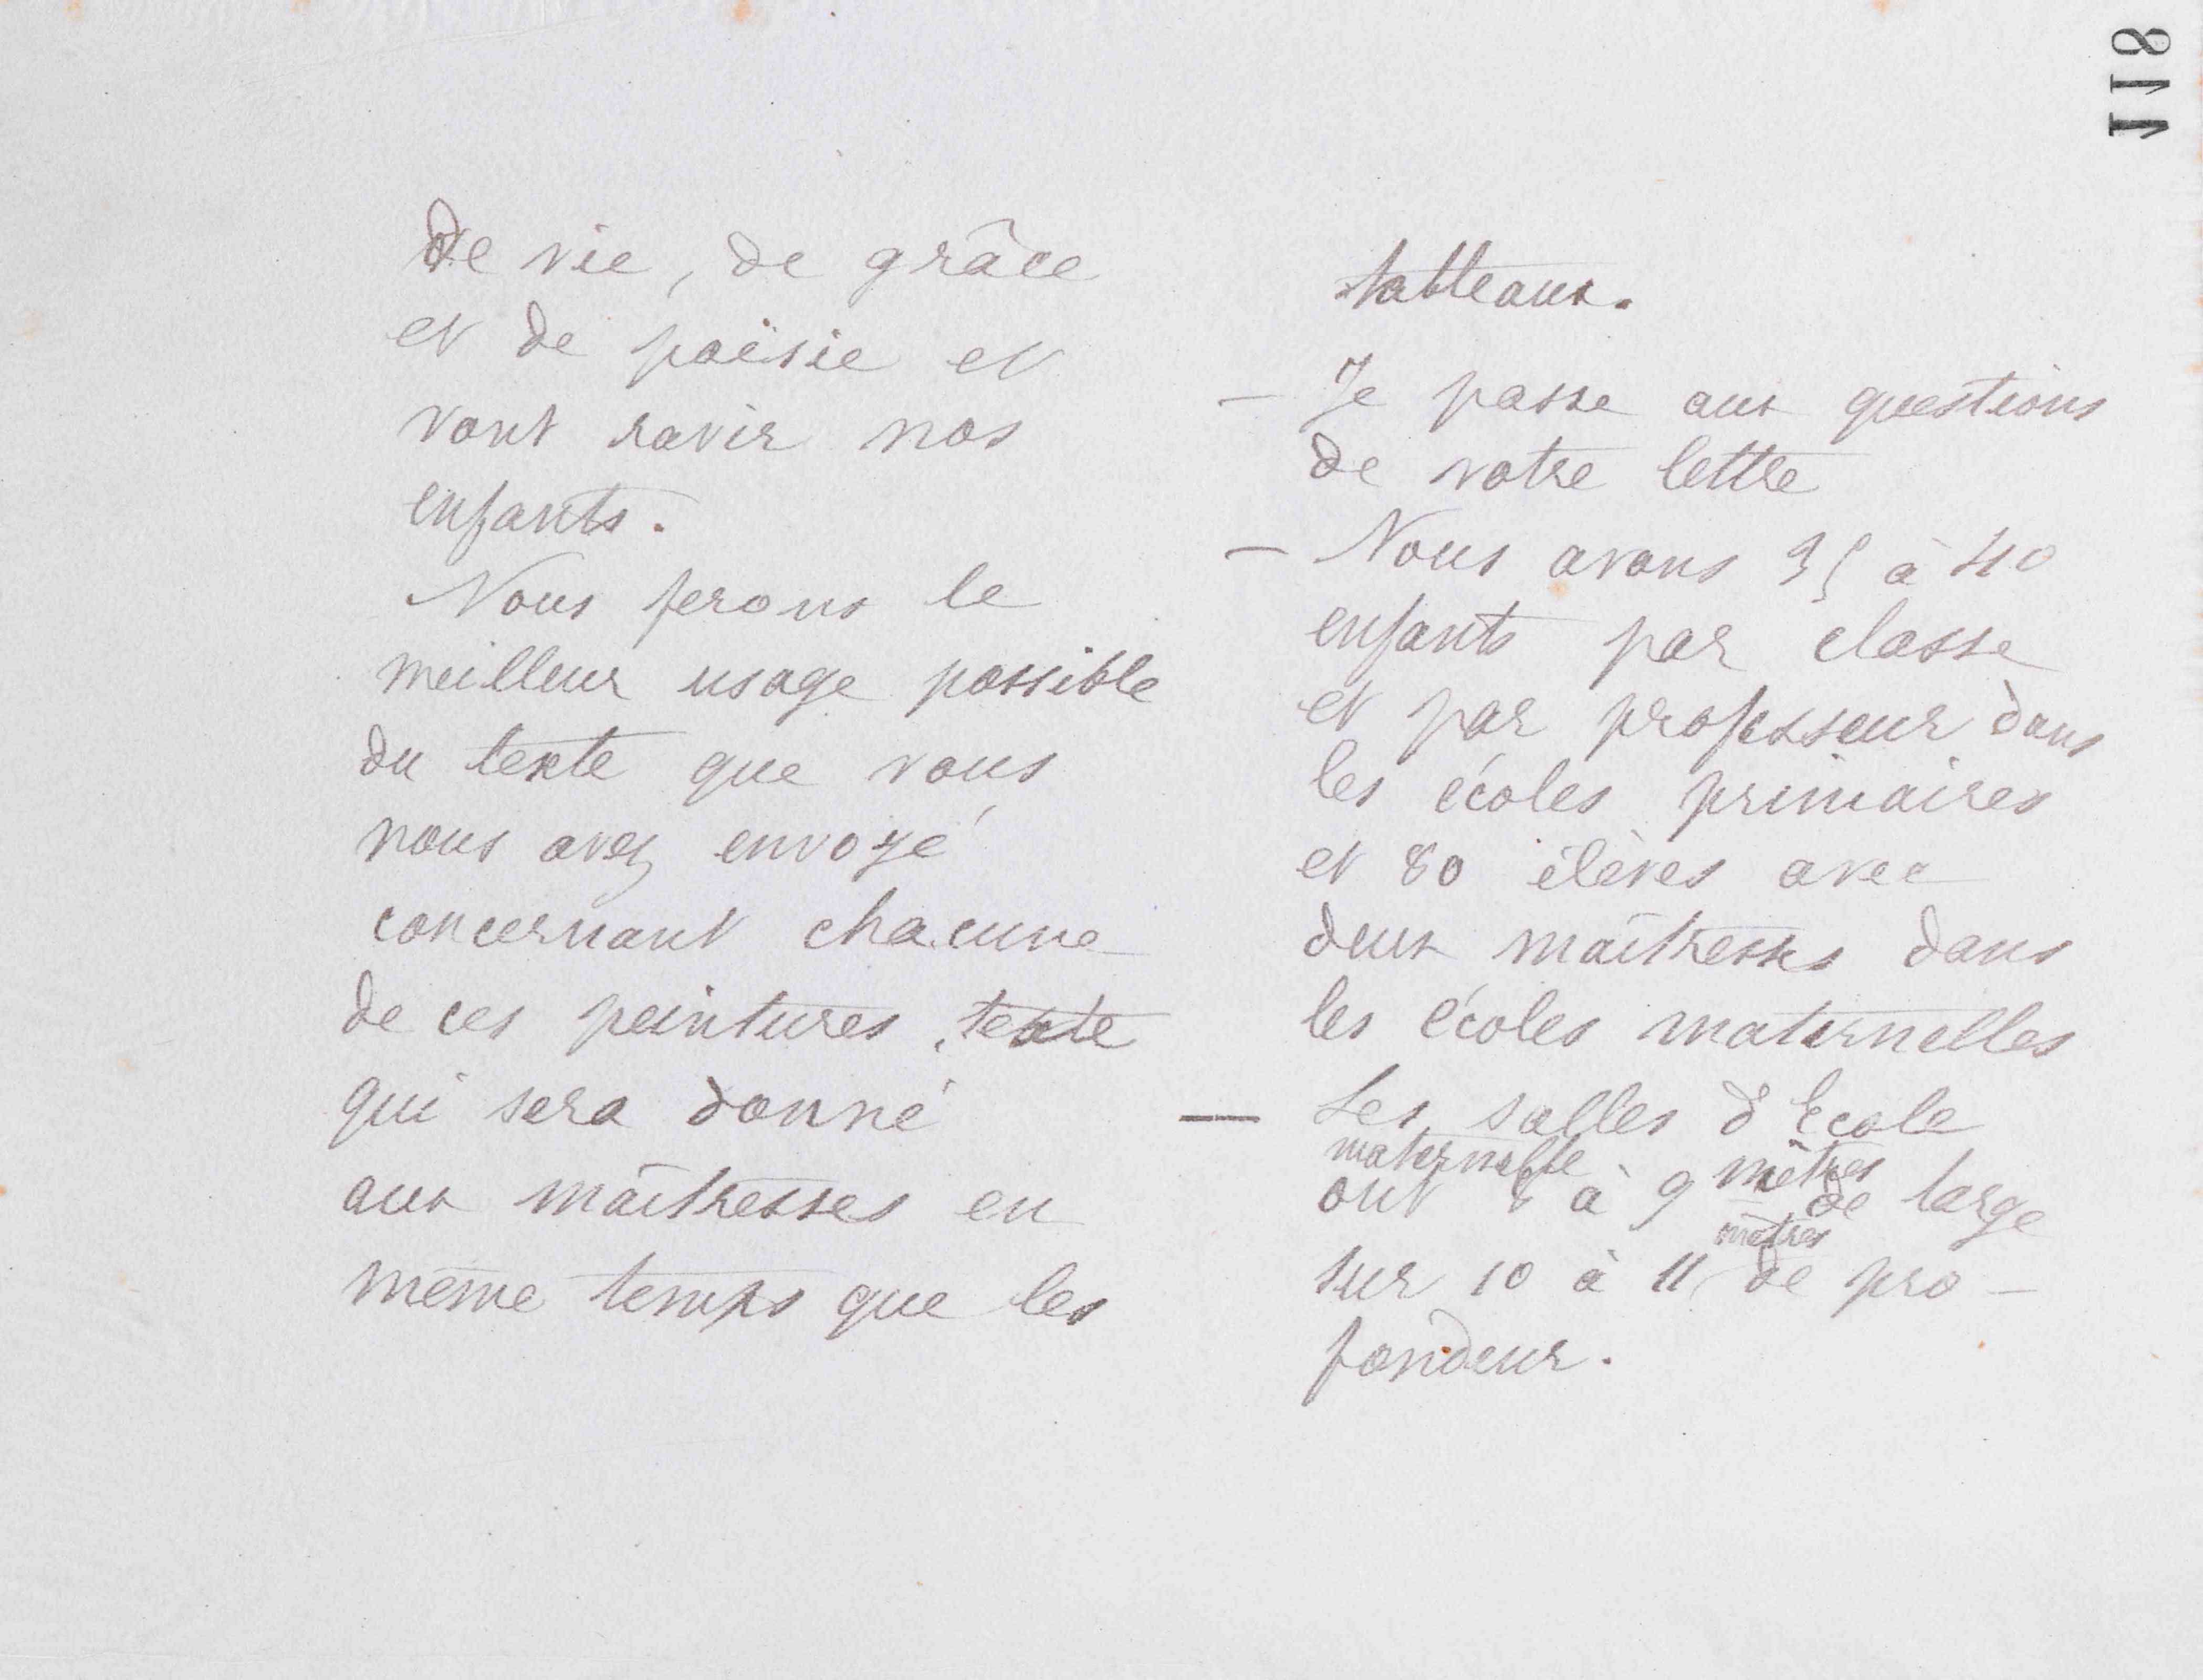 118
de vie, de grâce
et de poësie et
vont ravir nos
enfants.
Nous ferons le
meilleur usage possible
du texte que vous
nous avez envoyé
concernant chacune
de ces peintures, texte
qui sera donné
aux maîtresses en
même temps que les
tableaux.
— Je passe aux questions
de votre lettre
— Nous avons 35 à 40
enfants par classe
et par professeur dans
les écoles primaires
et 80 élèves avec
deux maîtresses dans
les écoles maternelles
— Les salles d'école
maternelle mètres
ont 8 à 9 de large
mètres
sur 10 à 11 de pro-
fondeur.